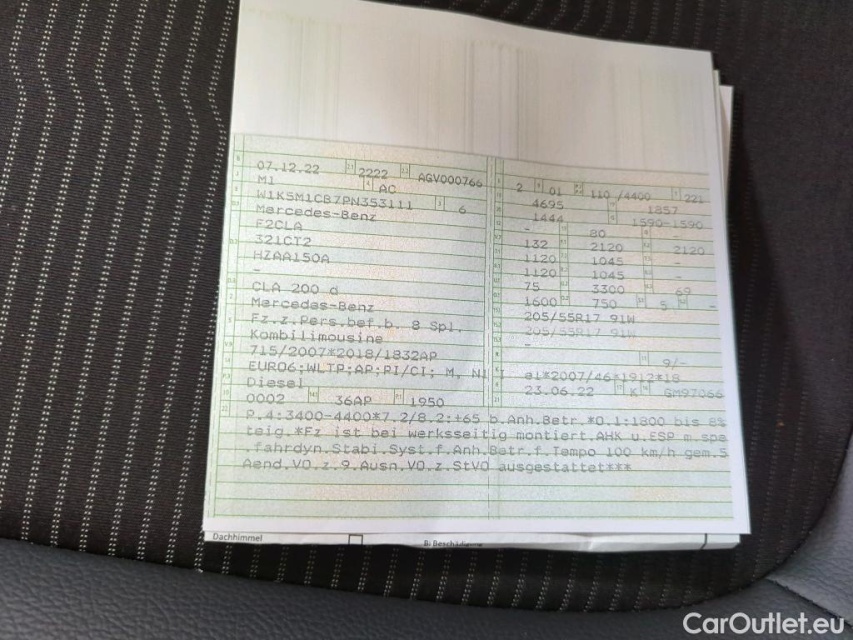 07.12.22 2222 AGV000766
M1 AC
W1K5M1CB7PN353111 6
Mercedes-Benz
F2CLA
321CT2
HZAA150A
-
CLA 200 d
Mercedes-Benz
Fz.z.Pers.bef.b. 8 Spl.
Kombilimousine
715/2007*2018/1832AP
EURO6;WLTP;AP;PI/CI; M, N1
Diesel
0002 36AP 1950
2 01 110 /4400 221
4695 1857
1444 1590-1590
- 80 -
132 2120 2120
1120 1045
1120 1045 -
75 3300 69
1600 750 5 -
205/55R17 91W
205/55R17 91W
-
9/-
e1*2007/46*1912*18
23.06.22 K GM97066
P.4:3400-4400*7.2/8.2:+65 b.Anh.Betr.*O.1:1800 bis 8%
teig.*Fz ist bei werksseitig montiert.AHK u.ESP m.spe
.fahrdyn.Stabi.Syst.f.Anh.Betr.f.Tempo 100 km/h gem.5
Aend.VO.z.9.Ausn.VO.z.StVO ausgestattet***
Dachhimmel
CarOutlet.eu